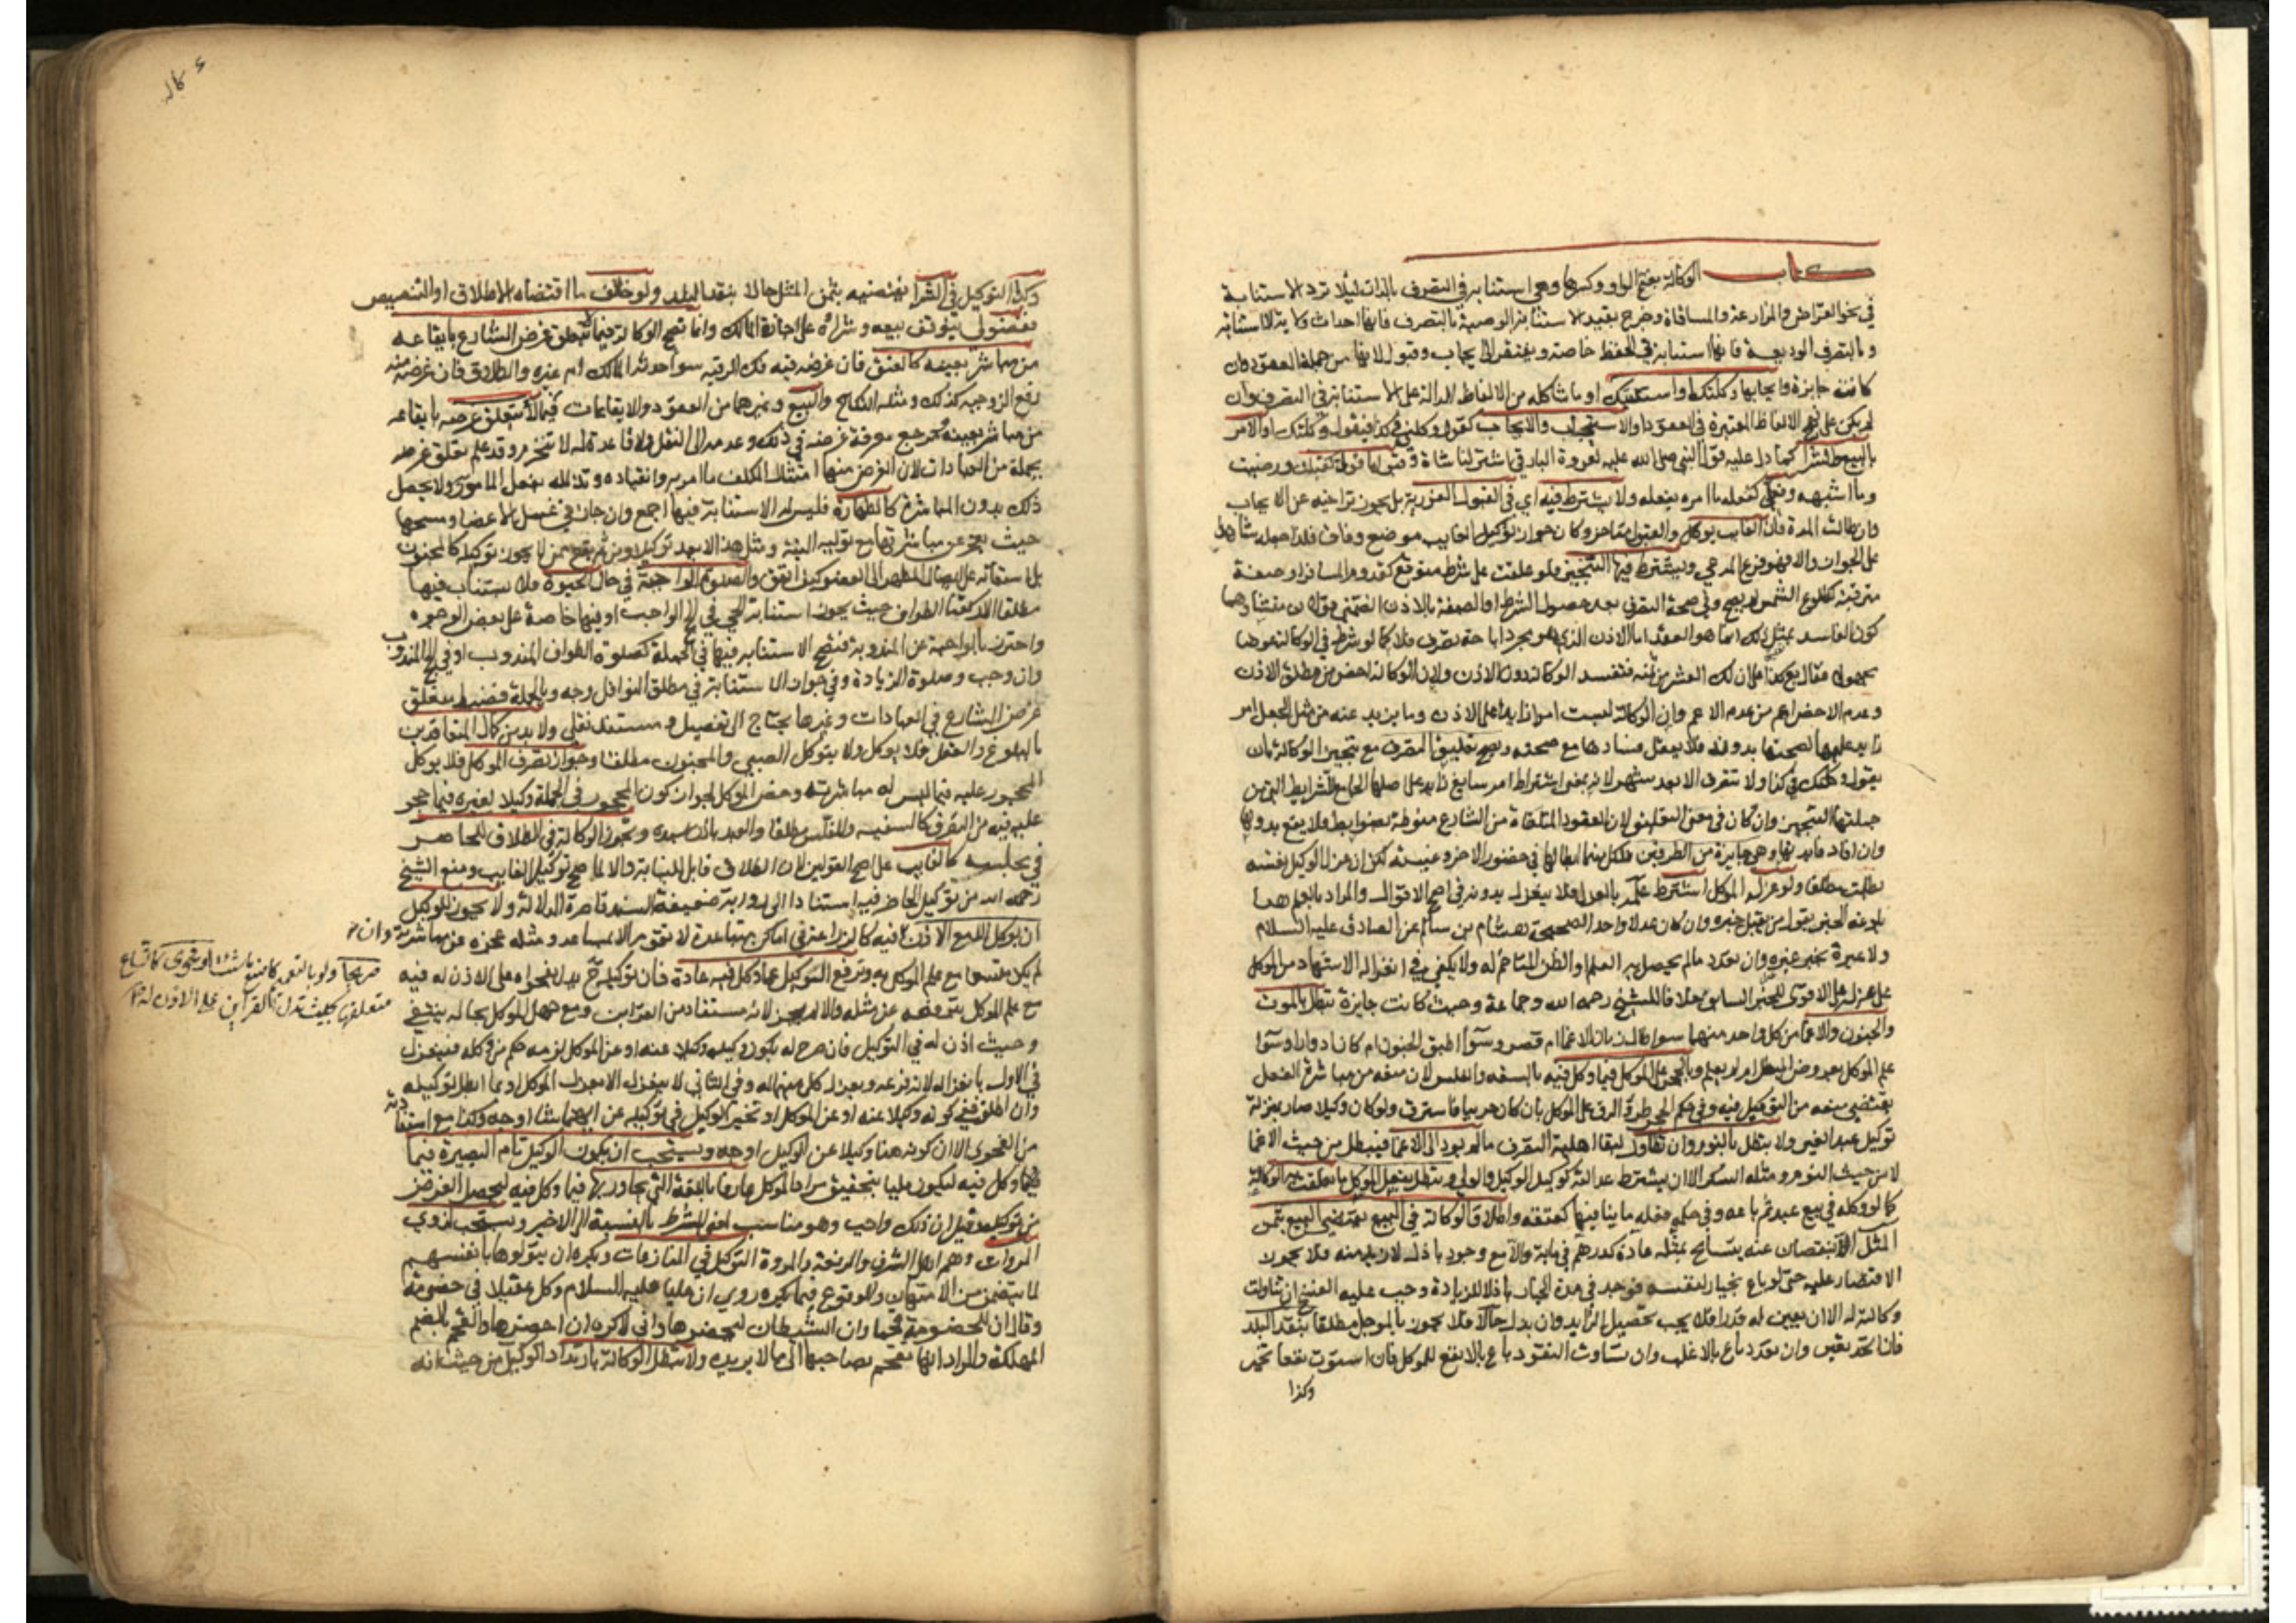 كتاب الوكالة بفتح الواو وكسرها وهي استنابة في التصرف بالذات لئلا ترد الاستنابة
في نحو القراض والمزارعة والمساقاة وخرج بقيد الاستنابة الوصية بالتصرف فانها احداث ولاية لا استنابة
وبالتصرف الوديعة فانها استنابة في الحفظ خاصة ويفتقر الى ايجاب وقبول لانها من جملة العقود وان
كانت جايزة وايجابها وكلتك او استنبتك او ما شاكله من الالفاظ الدالة على الاستنابة في التصرف وان
لم يكن على نهج الالفاظ المعتبرة في العقود او الاستيجاب والايجاب كقوله وكلني في كذا فيقول وكلتك او الامر
بالبيع والشراء كما دل عليه قول النبي صلى الله عليه لعروة البارقي اشتر لنا شاة وقبولها قولي كقبلت ورضيت
وما اشبهه وفعلي كفعله ما امره بفعله ولا يشترط فيه اي في القبول الفورية بل يجوز تراخيه عن الايجاب
وان طالت المدة فان الغايب يوكل والقبول متاخر وكان جواز توكيل الغايب موضع وفاق فلذا جعله شاهدا
على الجواز والا فهو فرع المدعي ويشترط فيها التنجيز فلو علقت على شرط متوقع كقدوم المسافر او صفة
مترقبة كطلوع الشمس لم يصح وفي صحة التصرف بعد حصول الشرط او الصفة بالاذن الضمني قولان منشأهما
كون الفاسد بمثل ذلك انما هو العقد اما الاذن الذي هو مجرد اباحة تصرف فلا كما لو شرط في الوكالة عوضا
مجهولا فقال بع كذا على ان لك العشر من ثمنه فتفسد الوكالة دون الاذن ولان الوكالة اخص من مطلق الاذن
وعدم الاخص اعم من عدم الاعم وان الوكالة ليست امرا زايدا على الاذن وما يزيد عنه من مثل الجعل امر
زايد عليها لصحتها بدونه فلا يعقل فسادها مع صحته ويصح تعليق التصرف مع تنجيز الوكالة بان
يقول وكلتك في كذا ولا تتصرف الا بعد شهر لانه بمعنى اشتراط امر سايغ زايد على اصلها الجامع للشرايط التي من
جملتها التنجيز وان كان في معنى التعليق لان العقود المتلقاة من الشارع منوطة بضوابط فلا يقع بدونها
وان افاد فايدتها وهي جايزة من الطرفين فلكل منهما ابطالها في حضور الاخر وغيبته لكن ان عزل الوكيل نفسه
بطلت مطلقا ولو عزله الموكل اشترط علمه بالعزل فلا ينعزل بدونه في اصح الاقوال والمراد بالعلم هنا
بلوغه الخبر بقول من يقبل خبره وان كان عدلا واحدا لصحيحة هشام بن سالم عن الصادق عليه السلام
ولا عبرة بخبر غيره وان تعدد ما لم يحصل به العلم او الظن المتاخم له ولا يكفي في انعزاله الاشهاد من الموكل
على عزله على الاقوى للخبر السابق خلافا للشيخ رحمه الله وجماعة وحيث كانت جايزة تبطل بالموت
والجنون والاغما من كل واحد منهما سوا طال زمان الاغما ام قصر وسوا اطبق الجنون ام كان ادوارا وسوا
علم الموكل بعروض المبطل ام لم يعلم وبالحجر على الموكل فيما وكل فيه بالسفه والفلس لان منعه من مباشرة الفعل
يقتضي منعه من التوكيل فيه وفي حكم الحجر طرو الرق على الموكل بان كان حربيا فاسترق ولو كان وكيلا صار بمنزلة
توكيل عبد الغير ولا يبطل بالنوم وان تطاول لبقا اهلية التصرف ما لم يؤد الى الاغما فيبطل من حيث الاغما
لا من حيث النوم ومثله السكر الا ان يشترط عدالته كوكيل الوكيل والولي وتبطل بفعل الموكل ما تعلقت به الوكالة
كما لو وكله في بيع عبد ثم باعه وفي حكمه فعله ما ينافيها كعتقه واطلاق الوكالة في البيع يقتضي البيع بثمن
المثل الا بنقصان عنه يتسامح بمثله عادة كدرهم في ماية والا مع وجود باذل لازيد منه فلا يجوز
الاقتصار عليه حتى لو باع بخيار لنفسه فوجد في مدة الخيار باذلا للزيادة وجب عليه الفسخ ان تناولت
وكالته له الا ان يعين له قدرا فلا يجب تحصيل الزايد وان بذل حالا فلا يجوز بالموجل مطلقا بنقد البلد
فان اتحد تعين وان تعدد باع بالاغلب وان تساوت النقود باع بالانفع للموكل فان استوت نفعا تخير
وكذا
وكالة
وكذا التوكيل في الشراء يقتضيه بثمن المثل حالا بنقد البلد ولو خالف ما اقتضاه الاطلاق او التنصيص
ففضولي يتوقف بيعه وشراؤه على اجازة المالك وانما تصح الوكالة فيما لا يتعلق غرض الشارع بايقاعه
من مباشر بعينه كالعتق فان غرضه فيه فك الرقبة سوا احدثه المالك ام غيره والطلاق فان غرضه منه
رفع الزوجية كذلك ومثله النكاح والبيع وغيرهما من العقود والايقاعات فيما لا يتعلق غرضه بايقاعه
من مباشر بعينه ومرجع معرفة غرضه في ذلك وعدمه الى النقل ولا قاعدة له لا تنخرم وقد علم تعلق غرضه
بجملة من العبادات لان الغرض منها امتثال المكلف ما امر به وانقياده وتذلله بفعل المامور ولا يحصل
ذلك بدون المباشرة كالطهارة فليس له الاستنابة فيها اجمع وان جاز في غسل الاعضا ومسحها
حيث يعجز عن مباشرتها مع توليه النية ومثل هذا لا يعد توكيلا ومن ثم يقع ممن لا يجوز توكيله كالمجنون
بل استعانة على ايصال المطهر الى العضو كيف اتفق والصلوة الواجبة في حال الحيوة فلا يستناب فيها
مطلقا الا ركعتا الطواف حيث يجوز استنابة الحي في الحج الواجب او فيها خاصة على بعض الوجوه
واحترز بالواجبة عن المندوبة فتصح الاستنابة فيها في الجملة كصلوة الطواف المندوب او في الحج المندوب
وان وجب وصلوة الزيارة وفي جواز الاستنابة في مطلق النوافل وجه وبالجملة فضبط متعلق
غرض الشارع في العبادات وغيرها يحتاج الى تفصيل ومستند نقلي ولا بد من كمال المتعاقدين
بالبلوغ والعقل فلا يوكل ولا يتوكل الصبي والمجنون مطلقا وجواز تصرف الموكل فلا يوكل
المحجور عليه فيما ليس له مباشرته وخص الموكل لجواز كون المحجور في الجملة وكيلا لغيره فيما حجر
عليه فيه من التصرف كالسفيه والمفلس مطلقا والعبد باذن سيده وتجوز الوكالة في الطلاق للحاضر
في مجلسه كالغايب على اصح القولين لان الطلاق قابل للنيابة والا لما صح توكيل الغايب ومنع الشيخ
رحمه الله من توكيل الحاضر فيه استنادا الى رواية ضعيفة السند قاصرة الدلالة ولا يجوز للوكيل
ان يوكل الا مع الاذن فيه كالزراعة في اماكن متباعدة لا تقوم الا بمساعد ومثله عجزه عن مباشرته وان
لم يكن متسعا مع علم الموكل به وترفع الوكيل عما وكل فيه عادة فان توكيله ح يدل بفحواه على الاذن له فيه
مع علم الموكل بترفعه عن مثله والا لم يجز لانه مستفاد من القراين ومع جهل الموكل بحاله ينتفي
وحيث اذن له في التوكيل فان صرح له بكون وكيله وكيلا عنه او عن الموكل لزمه حكم من وكله فينعزل
في الاول بانعزاله لانه فرعه وبعزل كل منهما له وفي الثاني لا ينعزل الا بعزل الموكل او بما ابطل توكيله
وان اطلق ففي كونه وكيلا عنه او عن الموكل او تخير الوكيل في توكيله عن ايهما شا اوجه وكذا مع استفادته
من الفحوى الا ان كونه هنا وكيلا عن الوكيل اوجه ويستحب ان يكون الوكيل تام البصيرة فيما
وكل فيه ليكون مليا بتحقيق مراد الموكل عارفا باللغة التي يحاور بها فيما وكل فيه ليحصل الغرض
من توكيله وقيل ان ذلك واجب وهو مناسب لمعنى الشرط بالنسبة الى الاخير ويستحب لذوي
المروات وهم اهل الشرف والرفعة والمروة التوكيل في المنازعات ويكره ان يتولوها بانفسهم
لما يتضمن من الامتهان والوقوع فيما يكره روي ان عليا عليه السلام وكل عقيلا في خصومة
وقال ان للخصومة قحما وان الشيطان ليحضرها واني لاكره ان احضرها والقحم بالضم
المهلكة والمراد انها تقحم بصاحبها الى ما لا يريده ولا تبطل الوكالة بارتداد الوكيل من حيث انه
صريحا ولو بالتعميم كاصنع ما شئت او فحوى كاتساع
متعلقها بحيث تدل القراين على الاذن له